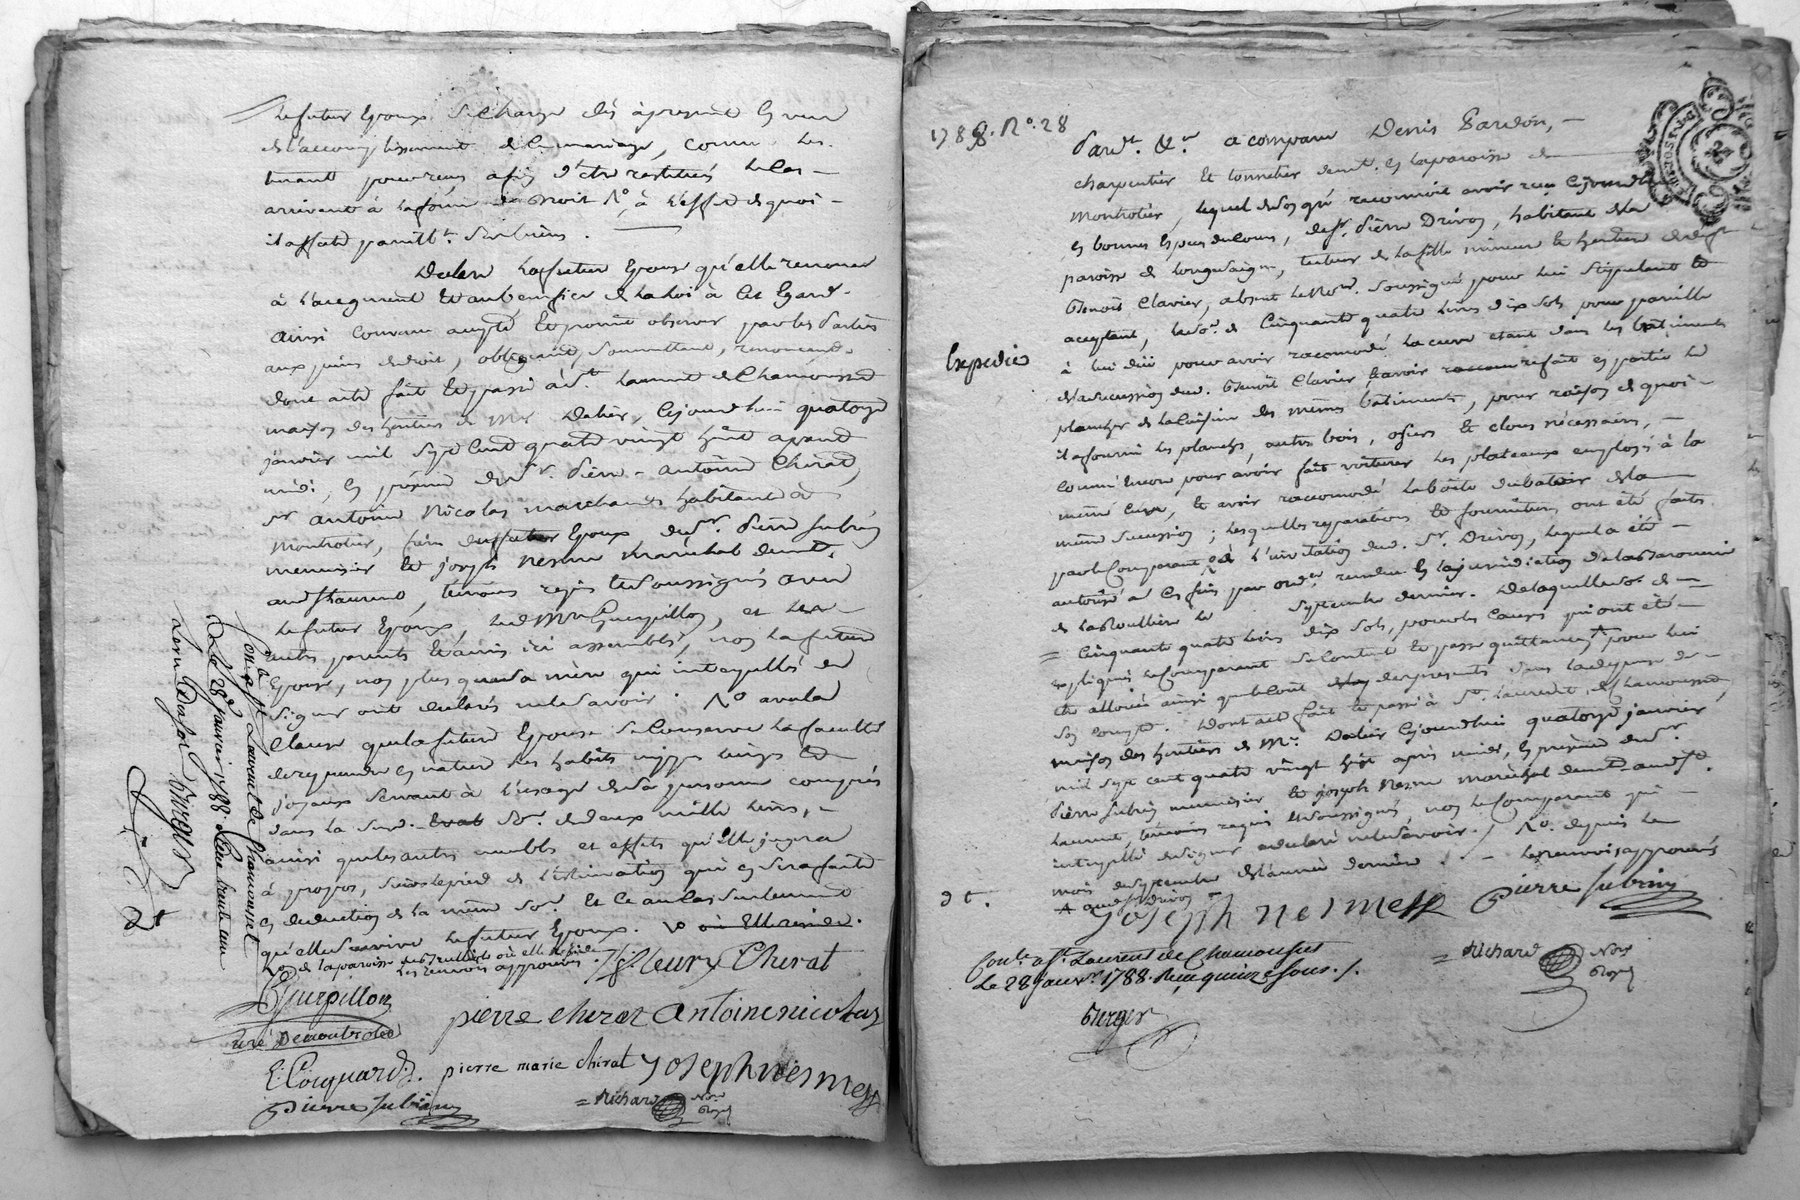 le futur Epoux se charge dès à present En vue
de l'accomplissement de ce mariage, comme les
tenant pour reçus afin d'être restitués le cas
arrivant à la forme de droit No. à l'effet de quoi
il affecte pareillt. ses biens.
Declare la future Epouse qu'elle renonce
à l'augment et au benefice de la loi à cet Egard.
ainsi convenu accepté et promis observer par les parties
aux peines de droit, obligeant, soumettant, renonceant.
dont acte fait et passé à St. Laurent de Chamousset
maison des héritiers de Mr Dalier, cejourdhui quatorze
janvier mil sept cent quatre vingt huit avant
midi, En présence de Sr. Pierre-antoine Chirat,
Sr antoine Nicolas marchands habitants à
Montrotier, frère du futur Epoux de Sr. Pierre Subrin
menuisier et joseph Nesme Maréchal demt.
aud St Laurent, témoins requis et soussignés avec
le futur Epoux led Mre Guerpillon, et les
autres parents et amis ici assemblés, non la future
Epouse, non plus que sa mère qui interpellés de
signer ont declaré ne le savoir. No avec la
Clause que la future Epouse se conserve la faculté
de reprendre en nature ses habits nippes linges et
joyaux servant à l'usage de sa personne compris
dans la susd. So. de deux mille livres,
ainsi que les autres meubles et effets qu'Elle jugera
à propos, suivant le pied de l'estimation qui en sera faite
En deduction de la même So. Et ce au cas seulement
qu'elle survive le futur Epoux. Vo où Elle reside.
les renvois approuvés.
Fleury Chirat
Guerpillon
curé de montrotier
pierre chirat antoine nicolas
E. Coquard. pierre marie chirat joseph nesme
Pierre Subrin
Richard Nore Royal
Con.lé à St. Laurent de Chamousset
Le 28 janvier 1788. Reçu trente une
Berger
dt
1788. No. 28
Pardt. &a. a comparu Denis Pardon,
charpentier Et tonnelier demt. En la paroisse de
Montrotier, lequel de son gré reconnoit avoir reçu cejourdhui
En bonnes Espèces de cours, de Sr. Pierre Drivon, habitant de la
paroisse de Longessaigne, tuteur de la fille mineure et heritiere de deft
Benoit Clavier, absent le Nore. soussigné pour lui stipulant et
acceptant, la so. de Cinquante quatre livres dix sols pour pareille
Expedié
à lui düe pour avoir racomodé la cuve etant dans les bâtiments
de la succession dud. Benoit Clavier, avoir refait en partie le
plancher de la cuisine des mêmes bâtiments, pour raison de quoi
il a fourni les planches, autres bois, osiers Et clous nécessaires,
comme Encore pour avoir fait voiturer les plateaux employés à la
même cuve, et avoir raccomodé la boîte du batoir de la
même succession; lesquelles reparations et fournitures ont été faites
par le Comparant de l'invitation dud. Sr. Drivon, lequel a été
autorisé à ces fins par ordce. rendue En la juridiction de la Baronnie
de la Roullière le septembre dernier. De laquelle so. de
Cinquante quatre livres dix sols, pour les causes qui ont été
expliquées le Comparant se contente et passe quittance pour lui
être allouée ainsi que le coût des presentes dans la depense de
son compte. Dont acte fait et passé à St. Laurent de Chamousset,
maison des heritiers de Mr. Dalier Cejourdhui quatorze janvier
mil sept cent quatre vingt huit après midi, En présence de Sr.
Pierre Subrin menuisier et joseph Nesme maréchal demt. aud St.
Laurent, témoins requis et soussignés, non le Comparant qui
interpellé de signer a declaré ne le savoir. No. depuis le
mois de septembre de l'année dernière. les renvois approuvés
A aud Sr. Drivon
dt.
joseph nesme Pierre Subrin
Richard Nore Royal
Con.lé à St. Laurent de Chamousset
Le 28 janvr. 1788. Reçu quinze sous.
Berger